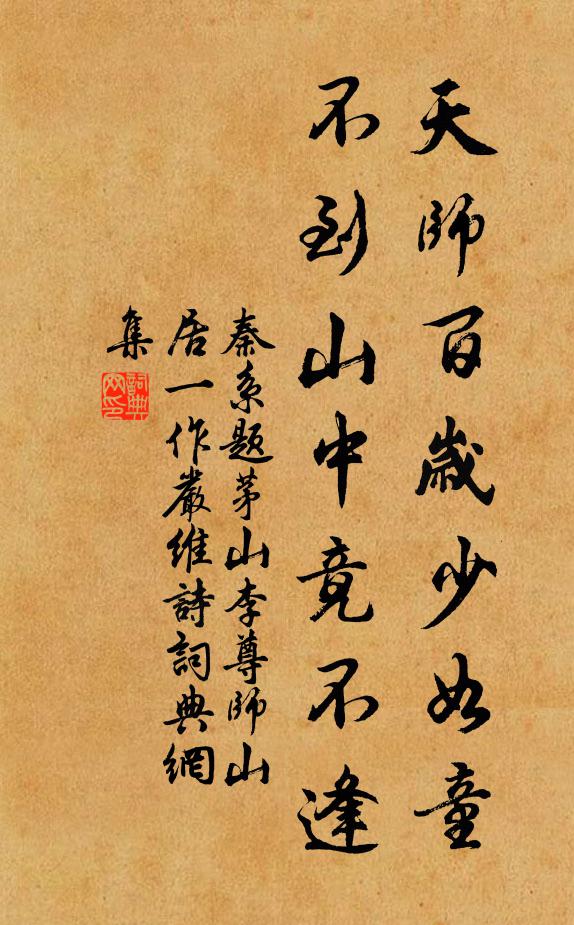 天師百歲少如童
不到山中竟不逢
秦系題茅山李尊師山
居一作嚴維詩詞典網
集
詞典
网印